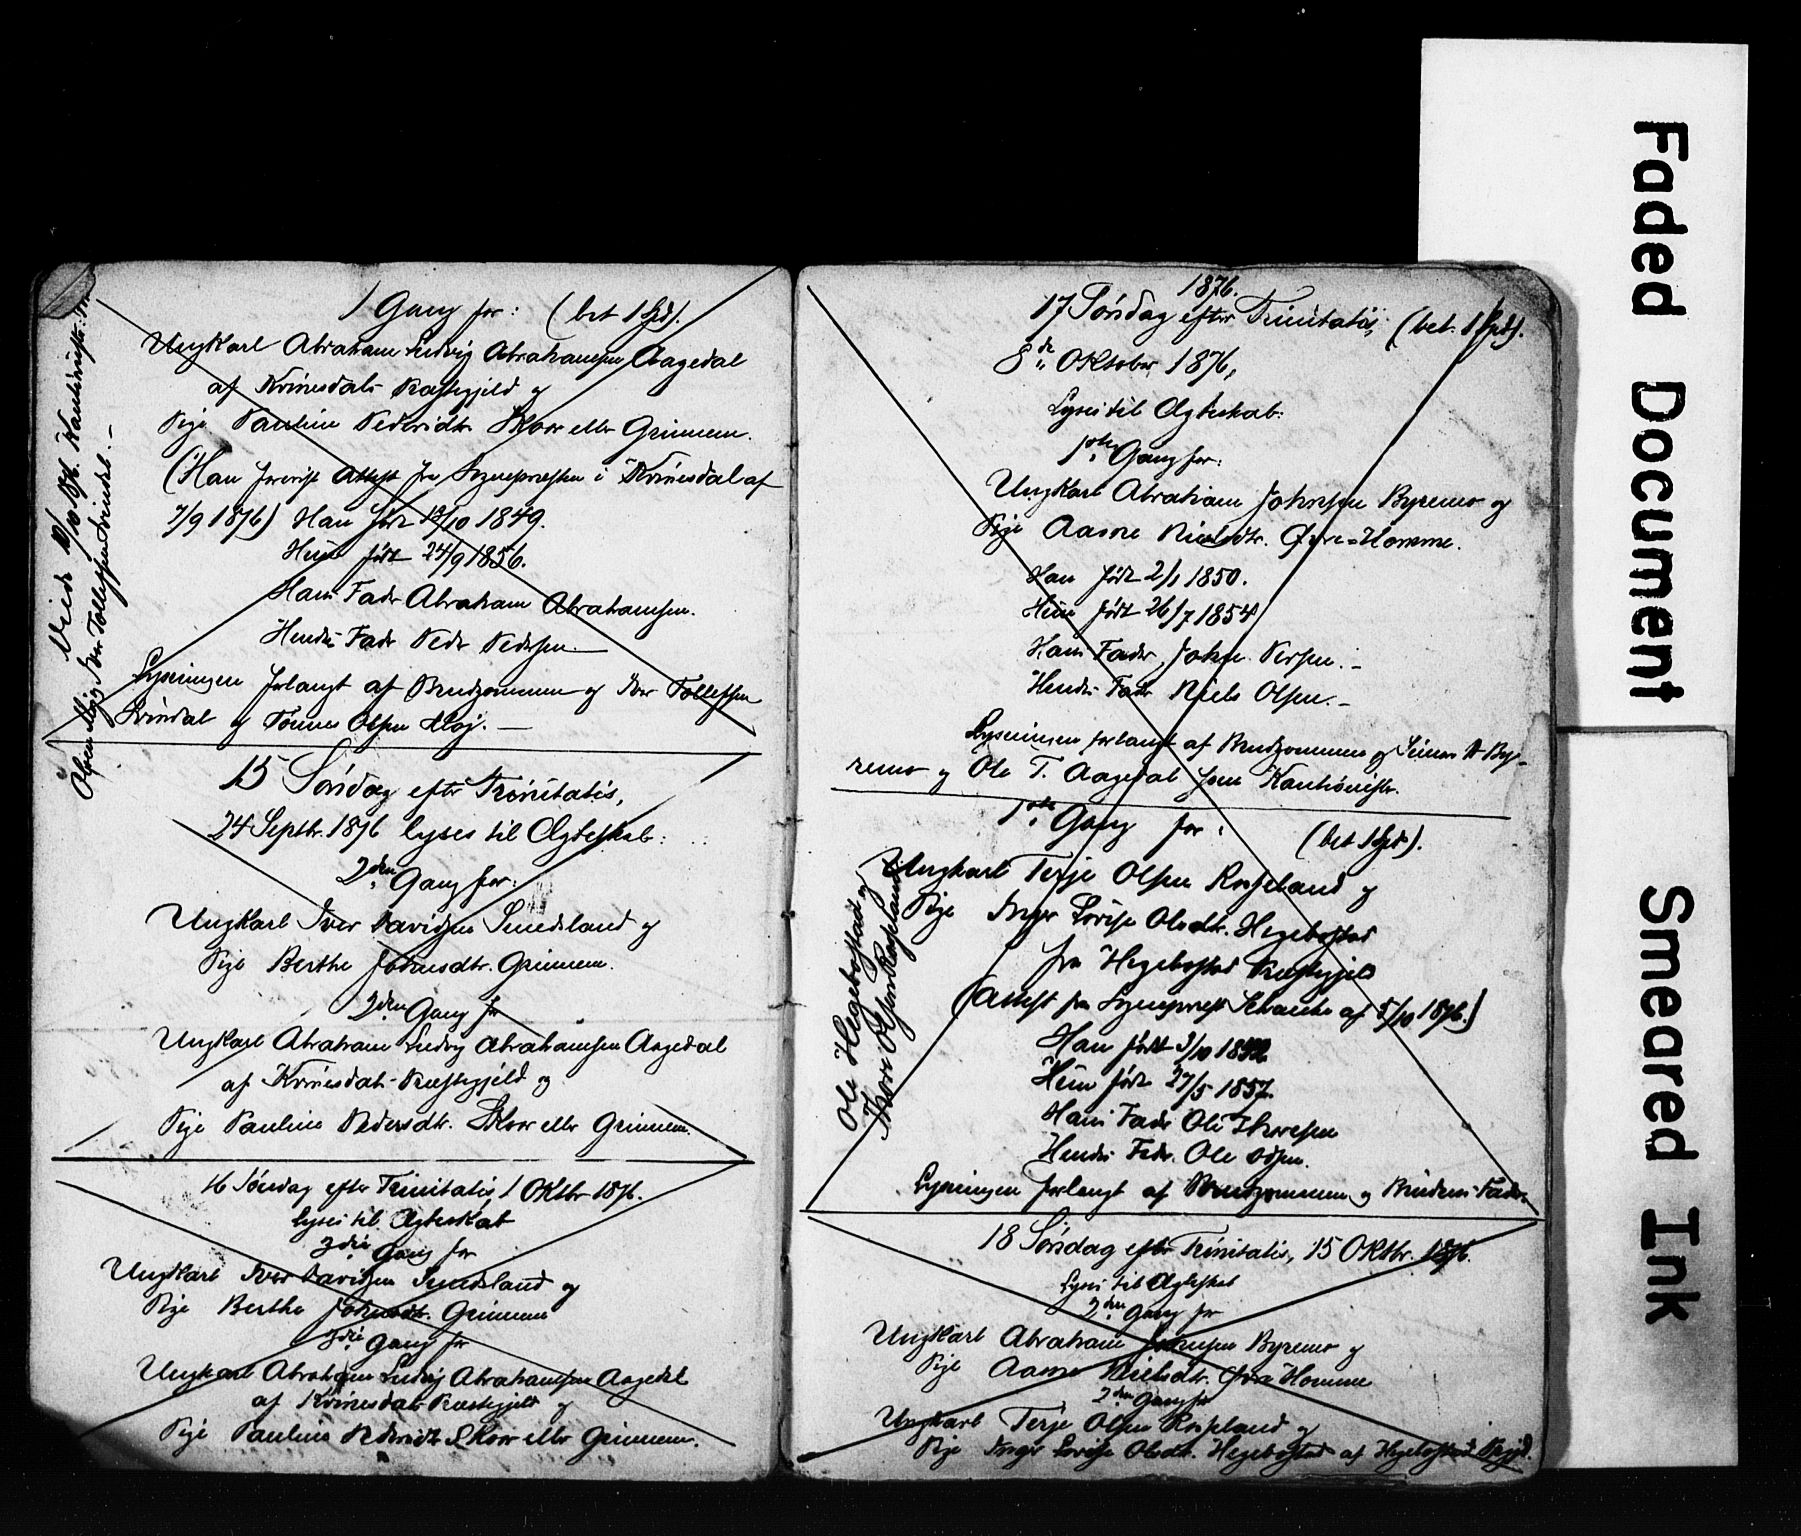 1 Gang for: (bet 1 Spd).
Ungkarl Abraham Ludvig Abrahamsen Aagedal
af Kvinesdals Præstegjeld og
Pige Pauline Pedersdtr. Skoor eller Grinnem.
(Han forevist Attest fra Sognepræsten i Kvinesdal af
7/9 1876) Han født 19/10 1849.
Hun født 24/9 1856.
Hans Fader Abraham Abrahamsen.
Hendes Fader Peder Pedersen.
Lysningen forlangt af Brudgommen og Iver Tollefsen
Svindal og Tønnes Olsen
15 Søndag efter Trinitatis,
24 Septbr. 1876 lyses til Ægteskab:
2den Gang for:
Ungkarl Iver Davidsen Smedsland og
Pige Berthe Johnsdtr. Grinnem.
2den Gang for
Ungkarl Abraham Ludvig Abrahamsen Aagedal
af Kvinesdals Præstegjeld og
Pige Pauline Pedersdtr. Skoor eller Grinnem.
16 Søndag efter Trinitatis, 1 Oktbr 1876.
Lyses til Ægteskab
3die Gang for
Ungkarl Iver Davidsen Smedsland og
Pige Berthe Johnsdtr. Grinnem
3die Gang for
Ungkarl Abraham Ludvig Abrahamsen Aagedal
af Kvinesdals Præstegjeld og
Pige Pauline Pedersdtr Skoor eller Grinnem.
1876.
17 Søndag efter Trinitatis, (bet. 1 Spd).
8de Oktober 1876,
Lyses til Ægteskab:
1ste Gang for:
Ungkarl Abraham Johnsen Byremo og
Pige Aasne Nielsdtr. Øvre-Homme.
Han født 2/1 1850.
Hun født 26/7 1854
Hans Fader, John Persen.
Hendes Fader Niels Olsen.
Lysningen forlangt af Brudgommen og By-
remo og Ole T. Aagedal som Kautionister.
1ste Gang for: (bet 1 Spd).
Ungkarl Terje Olsen Rosseland og
Pige Inger Lovise Olsdtr. Hegebostad
fra Hegebostad Præstegjeld
(Attest fra Sognepræst af 5/10 1876.)
Han født 3/10
Hun født 27/5 1857.
Hans Fader Ole Thoresen
Hendes Fader Ole
Lysningen forlangt af Brudgommen og Brudens Fader
Ole Hegebostad og
Thore Olsen Rosseland
18 Søndag efter Trinitatis, 15 Oktbr. 1876.
Lyses til Ægteskab
2den Gang for
Ungkarl Abraham Johnsen Byremo og
Pige Aasne Nielsdtr. Øvre Homme
2den Gang for
Ungkarl Terje Olsen Rosseland og
Pige Inger Lovise Olsdtr. Hegebostad af Hegebostad Prgjld.
Faded Document
Smeared Ink